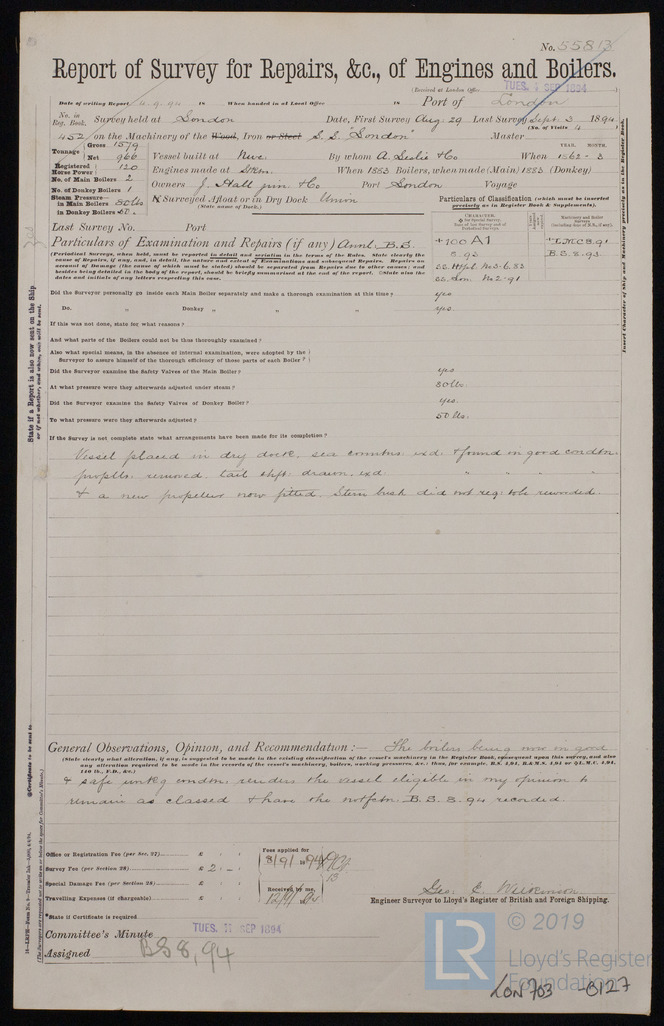 No. 55813
Report of Survey for Repairs, &c., of Engines and Boilers.
(Received at London Office TUES. SEP 1894 )
Date of writing Report 4.9.94 18 When handed in at Local Office 18 Port of London
No. in Reg. Book. Survey held at London Date, First Survey Aug: 29 Last Survey Sept. 3 1894
(No. of Visits 4 )
452 on the Machinery of the Wood, Iron or Steel S.S. "London" Master
Tonnage Gross 1579 Net 966
Vessel built at Nwc. By whom A. Leslie & Co When 1862-3
YEAR. MONTH.
Registered Horse Power 120 Engines made at When 1883 Boilers, when made (Main) 1883 (Donkey)
No. of Main Boilers 2
No. of Donkey Boilers 1 Owners J. Hall jun. & Co Port London Voyage
Steam Pressure— in Main Boilers 80 lbs
in Donkey Boilers 50
If Surveyed Afloat or in Dry Dock Union
(State name of Dock.)
Particulars of Classification (which must be inserted precisely as in Register Book & Supplements).
Last Survey No. Port
Particulars of Examination and Repairs (if any) Annl. B.S.
(Periodical Surveys, when held, must be reported in detail and seriatim in the terms of the Rules. State clearly the cause of Repairs, if any, and, in detail, the nature and extent of Examinations and subsequent Repairs. Repairs on account of Damage (the cause of which must be stated) should be separated from Repairs due to other causes; and besides being detailed in the body of the report, should be briefly summarised at the end of the report. State also the dates and initials of any letters respecting this case.
CHARACTER.
+100 A1
8.93
SS. No 3-6.83
SS. Lon. No 2-91
Machinery and Boiler Surveys
+LMC 8.91
B.S. 8.93
Did the Surveyor personally go inside each Main Boiler separately and make a thorough examination at this time? yes
Do. „ Donkey „ „ „ yes
If this was not done, state for what reasons?
And what parts of the Boilers could not be thoroughly examined?
Also what special means, in the absence of internal examination, were adopted by the Surveyor to assure himself of the thorough efficiency of those parts of each Boiler?
Did the Surveyor examine the Safety Valves of the Main Boiler? yes
At what pressure were they afterwards adjusted under steam? 80 lbs.
Did the Surveyor examine the Safety Valves of Donkey Boiler? yes.
To what pressure were they afterwards adjusted? 50 lbs.
If the Survey is not complete state what arrangements have been made for its completion?
Vessel placed in dry dock. sea conntns: exd: & found in good condtn.
propller removed. tail shft: drawn. exd: " " " "
& a new propeller now fitted. Stern bush did not req: to be rewooded.
General Observations, Opinion, and Recommendation :— The boilers being now in good
(State clearly what alteration, if any, is suggested to be made in the existing classification of the vessel's machinery in the Register Book, consequent upon this survey, and also any alteration required to be made in the records of the vessel's machinery, boilers, working pressures, &c.; thus, for example, B.S. 1,94, B.&M.S. 1,94 or L.M.C. 1,94, 140 lb., F.D., &c.)
& safe wrkg condtn: renders the vessel eligible in my opinion to
remain as classed & have the notfctn. B.S. 8.94 recorded.
Office or Registration Fee (per Sec. 27) £ : :
Survey Fee (per Section 28) £ 2 : - :
Special Damage Fee (per Section 28) £ : :
Travelling Expenses (if chargeable) £ : :
Fees applied for 8/9/1894
Received by me, 12/9/94
*State if Certificate is required
Geo. C. Wilkinson
Engineer Surveyor to Lloyd's Register of British and Foreign Shipping.
Committee's Minute TUES. 11 SEP 1894
Assigned BS 8,94
State if a Report is also now sent on the Ship, or if not whether, and when, one will be sent.
Insert Character of Ship and Machinery precisely as in the Register Book.
Certificate to be sent to
© 2019
LR Lloyd's Register Foundation
LON 703 -0127